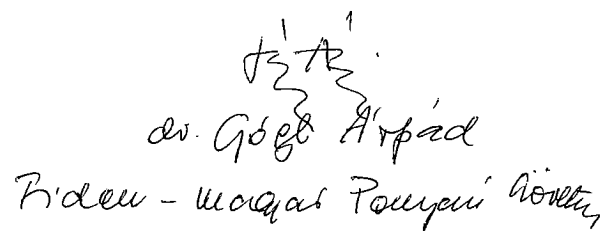 dr. Gógl Árpád
Fidesz - Magyar Polgári Szövetség